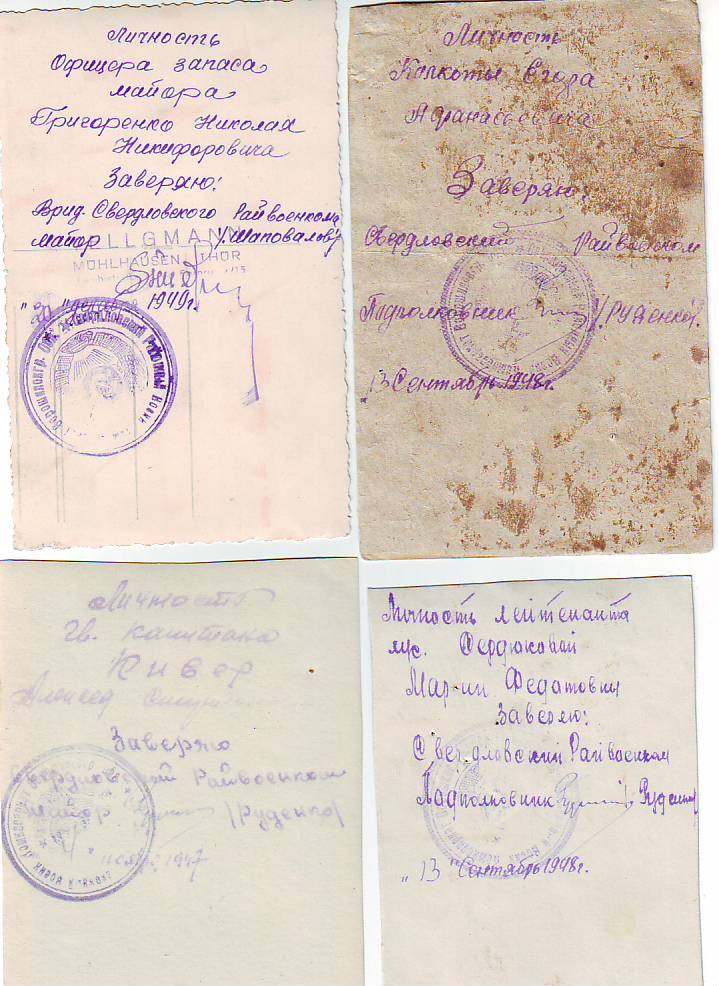 Личность
Офицера запаса
майора
Григоренко Николая
Никифоровича
Заверяю:
Врид. Свердловского Райвоенкома
майор /Шаповалов/
LLGMANN
MÜHLHAUSEN THÜR
1949г.
Личность
Колкоты Егора
Афанасьевича
Заверяю:
Свердловский Райвоенком
Подполковник /Руденко/.
"13 Сентябрь 1948г.
Личность
гв. капитана
Кивер
Алексея
Заверяю
Свердловский Райвоенком
майор /Руденко/
1947
Личность лейтенанта
м/с. Сердюковой
Марии Федатовны
Заверяю:
Свердловский Райвоенком
Падполковник /Руденко/
"13" Сентябрь 1948г.